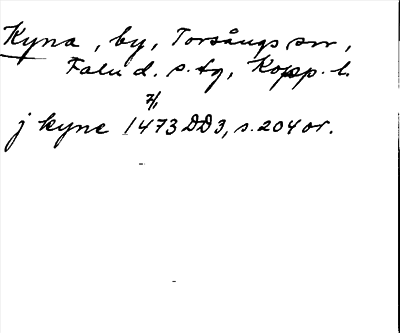 Kyna, by, Torsångs sn,
Falu d. s. tg, Kopp. l.
7/1
j kyne 1473 DD3, s. 204 or.